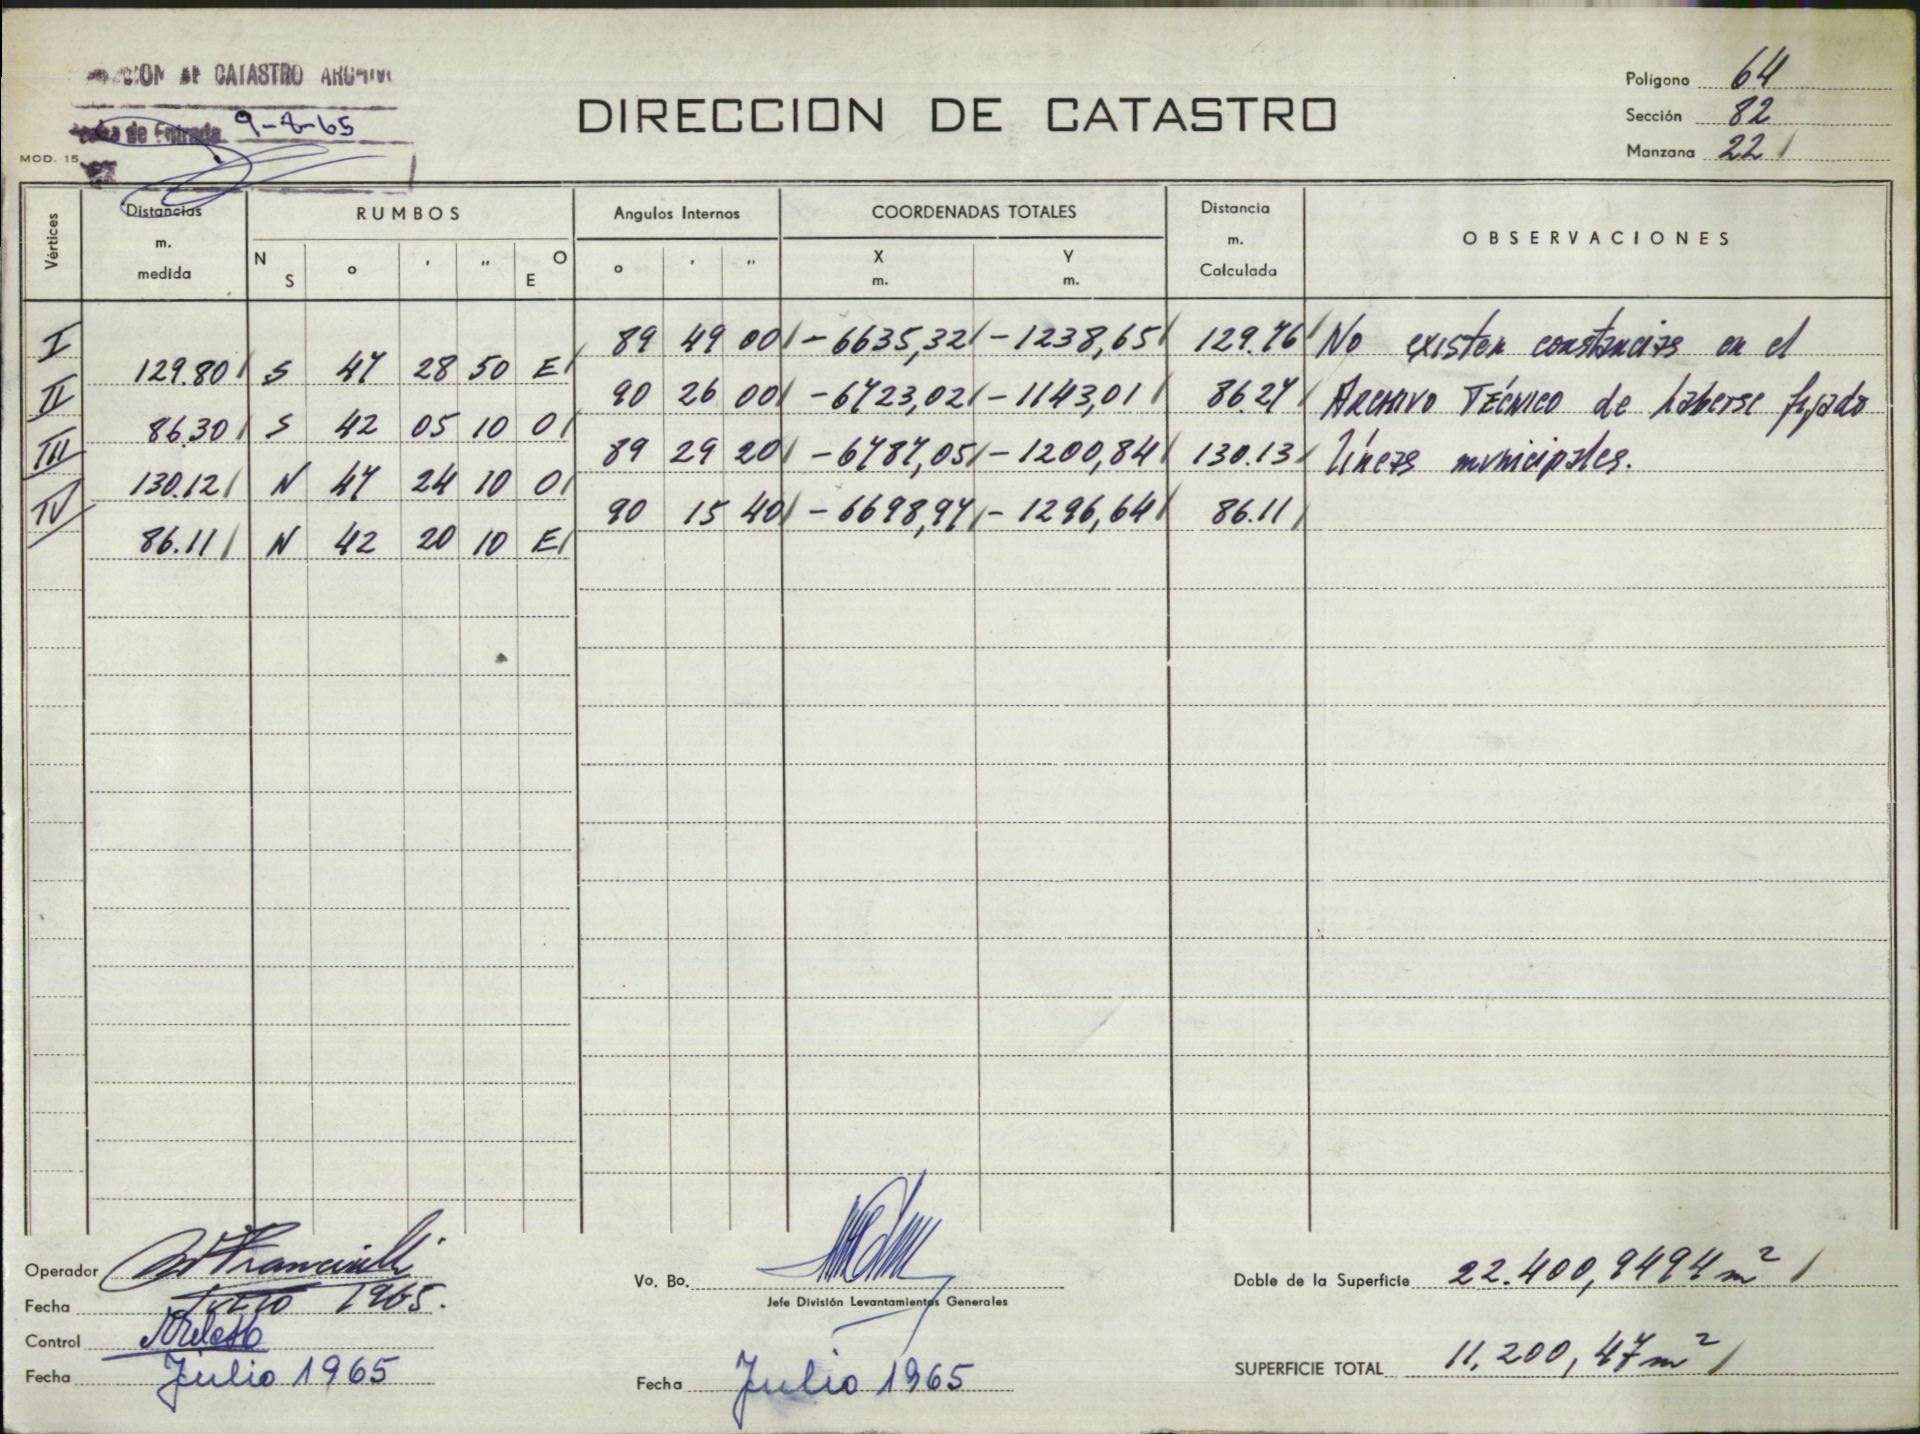 CATASTRO ARCHIVO
de Entrada 9-8-65
MOD. 15
DIRECCION DE CATASTRO
Polígono 64
Sección 82
Manzana 22
Vértices Distancias m. medida RUMBOS Angulos Internos COORDENADAS TOTALES Distancia m. Calculada OBSERVACIONES
N S ° ' " O E ° ' " X m. Y m.
I 89 49 00 -6635,32 -1238,65 129.76 No existen constancias en el
129.80 S 47 28 50 E
II 90 26 00 -6723,02 -1143,01 86.27 ARCHIVO TÉCNICO de haberse fijado
86.30 S 42 05 10 O
III 89 29 20 -6787,05 -1200,84 130.13 líneas municipales.
130.12 N 47 24 10 O
IV 90 15 40 -6698,97 -1296,64 86.11
86.11 N 42 20 10 E
Operador
Fecha JULIO 1965.
Control
Fecha Julio 1965
Vo. Bo.
Jefe División Levantamientos Generales
Fecha Julio 1965
Doble de la Superficie 22.400,9494 m²
SUPERFICIE TOTAL 11.200,47 m²